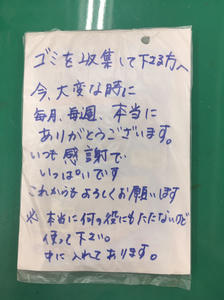 ゴミを収集して下さる方へ
今、大変な時に
毎月、毎週、本当に
ありがとうございます。
いつも感謝で
いっぱいです
これからもよろしくお願いします
※ 本当に何の役にもたたないけど
使って下さい。
中に入れてあります。